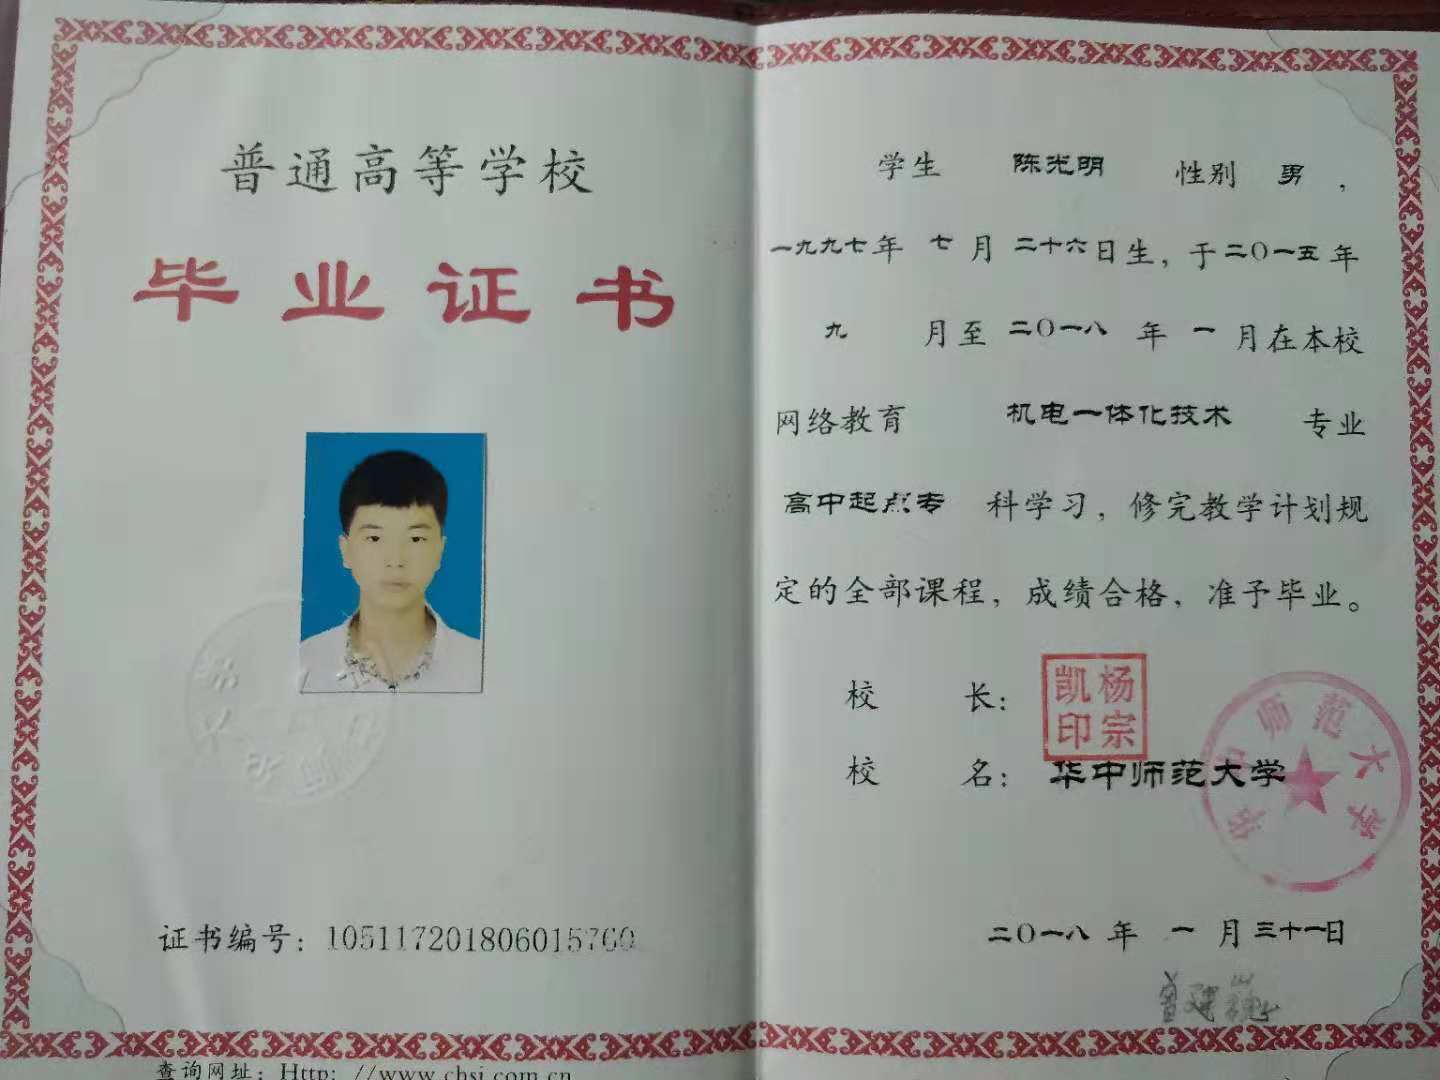 普通高等学校
毕业证书
证书编号：105117201806015760
查询网址：Http：//www.chsi.com.cn
学生 陈光明 性别 男，
一九九七年 七月 二十六日生，于二〇一五年
九 月至 二〇一八 年 一 月在本校
网络教育 机电一体化技术 专业
高中起点专 科学习，修完教学计划规
定的全部课程，成绩合格，准予毕业。
校 长：
杨宗凯印
校 名：华中师范大学
华中师范大学
二〇一八 年 一 月 三十一日